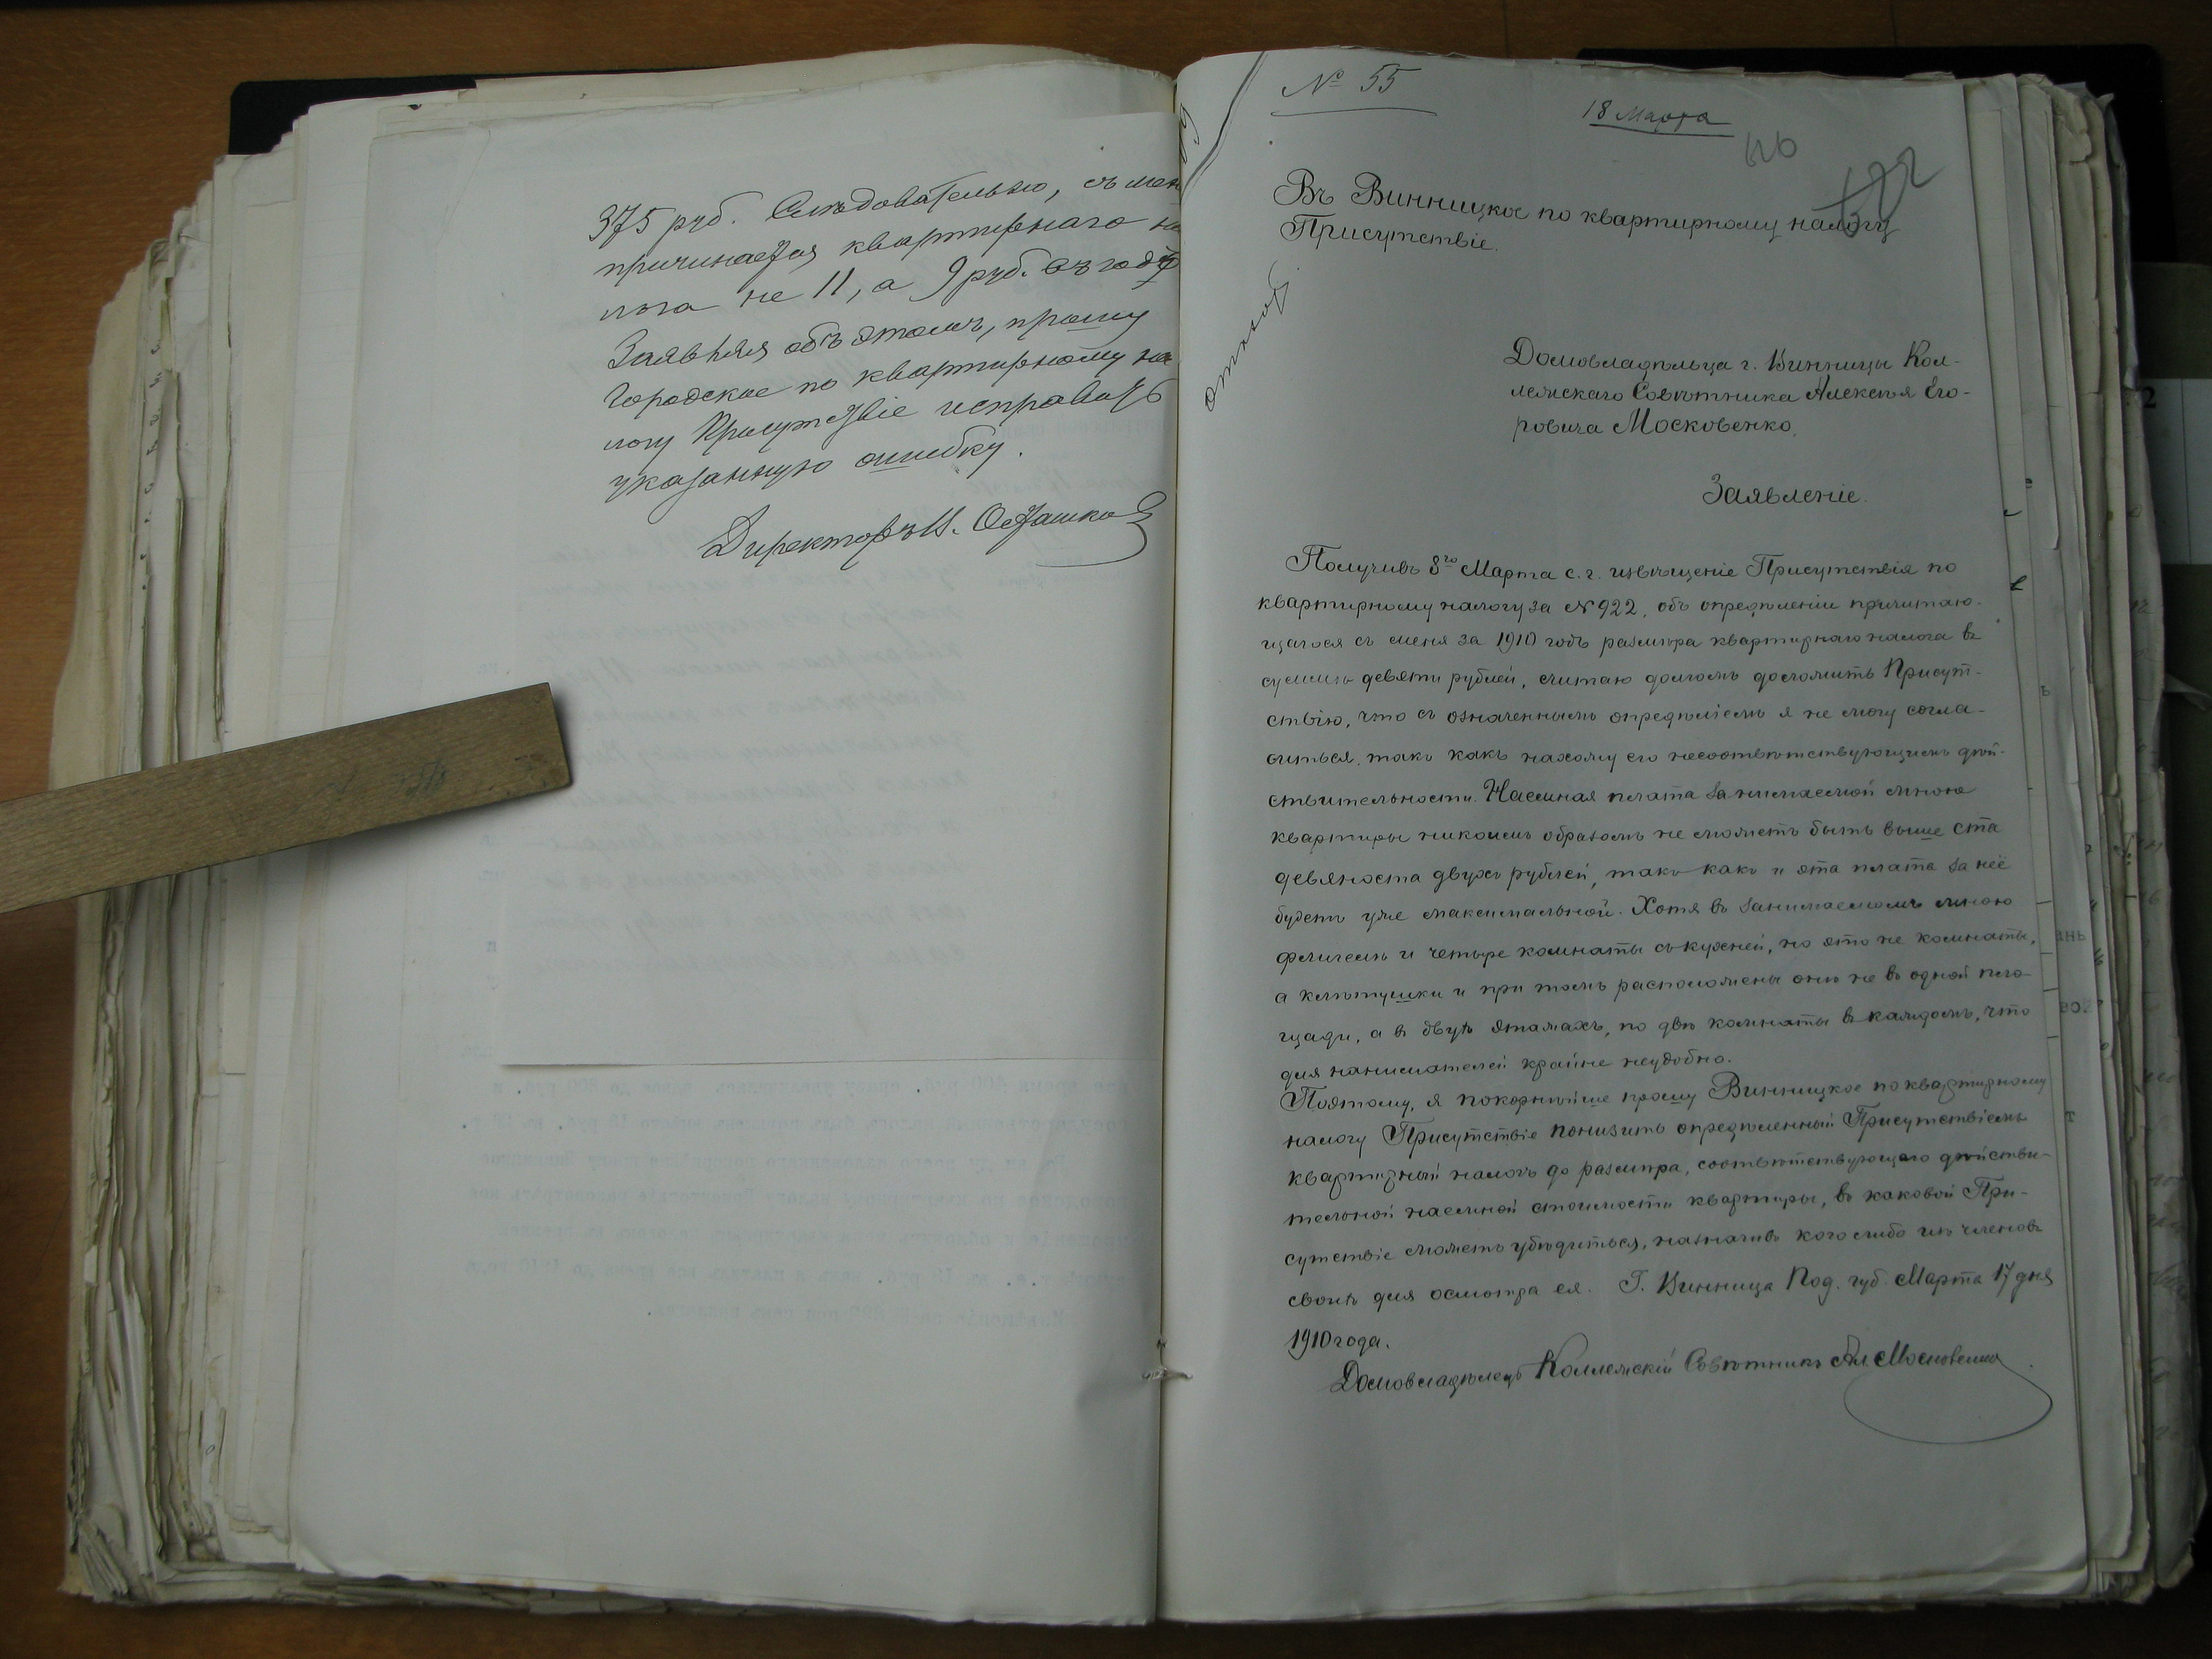 375 руб. Слѣдовательно, съ мен
причитается квартирнаго на
лога не 11, а 9 руб. въ годъ
Заявляя объ этомъ, прошу
Городское по квартирному на
логу Присутствіе исправить
указанную ошибку.
Директоръ Н. Осташков
№ 55
18 Марта
126
Въ Винницкое по квартирному налогу
Присутствіе.
отказ
Домовладѣльца г. Винницы Кол-
лежскаго Совѣтника Алексѣя Его-
ровича Московенко.
Заявленіе.
Получивъ 8го Марта с. г. извѣщеніе Присутствія по
квартирному налогу за № 922, объ опредѣленіи причитаю-
щагося съ меня за 1910 годъ размѣра квартирнаго налога въ
суммѣ девяти рублей, считаю долгомъ доложить Присут-
ствію, что съ означеннымъ опредѣленіемъ я не могу согла-
ситься, такъ какъ нахожу его несоотвѣтствующимъ дѣй-
ствительности. Наемная плата занимаемой мною
квартиры никоимъ образомъ не можетъ быть выше ста
девяноста двухъ рублей, такъ какъ и эта плата за неё
будетъ уже максимальной. Хотя въ занимаемомъ мною
флигелѣ и четыре комнаты съ кухней, но это не комнаты,
а клѣтушки и при томъ расположены онѣ не въ одной пло-
щади, а въ двухъ этажахъ, по двѣ комнаты въ каждомъ, что
для нанимателей крайне неудобно.
Поэтому, я покорнѣйше прошу Винницкое по квартирному
налогу Присутствіе понизить опредѣленный Присутствіемъ
квартирный налогъ до размѣра, соотвѣтствующаго дѣйстви-
тельной наемной стоимости квартиры, въ каковой При-
сутствіе можетъ убѣдиться, назначивъ кого либо изъ членовъ
своихъ для осмотра ея. Г. Винница Под. губ. Марта 17 дня
1910 года.
Домовладѣлецъ Коллежскій Совѣтникъ Ал. Московенко